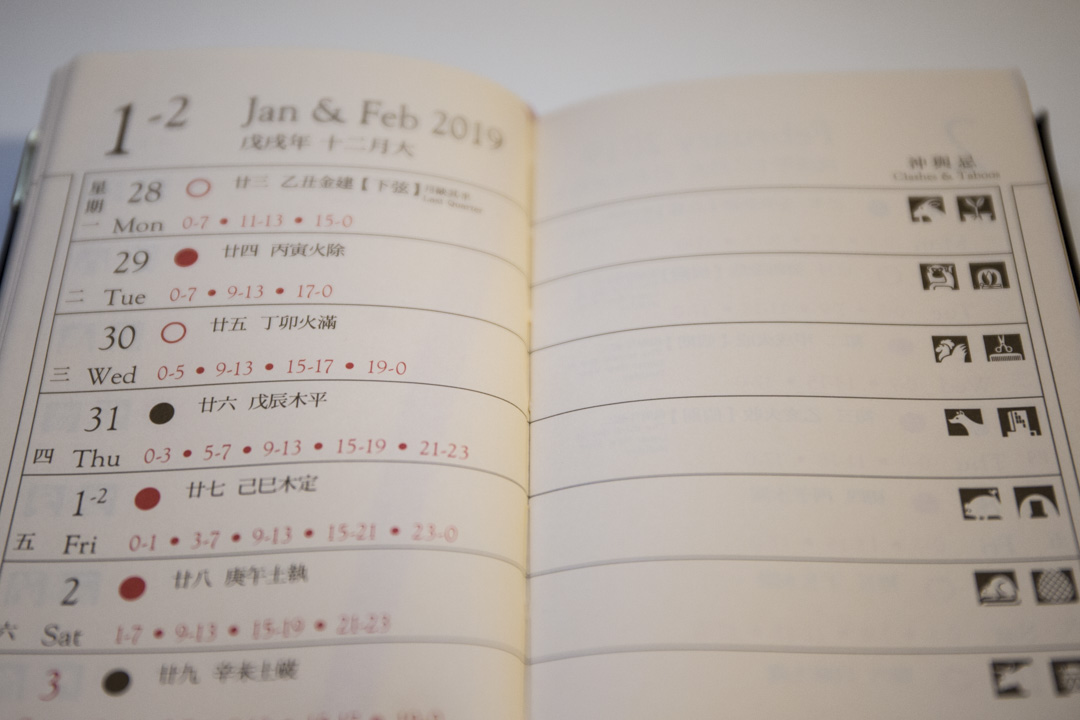 1-2 Jan & Feb 2019
戊戌年 十二月大
沖與忌
Clashes & Taboos
星期一 28 Mon 廿三 乙丑金建【下弦】
Last Quarter
0-7 • 11-13 • 15-0
二 29 Tue 廿四 丙寅火除
0-7 • 9-13 • 17-0
三 30 Wed 廿五 丁卯火滿
0-5 • 9-13 • 15-17 • 19-0
四 31 Thu 廿六 戊辰木平
0-3 • 5-7 • 9-13 • 15-19 • 21-23
五 1-2 Fri 廿七 己巳木定
0-1 • 3-7 • 9-13 • 15-21 • 23-0
六 2 Sat 廿八 庚午土執
1-7 • 9-13 • 15-19 • 21-23
3 廿九 辛未土破